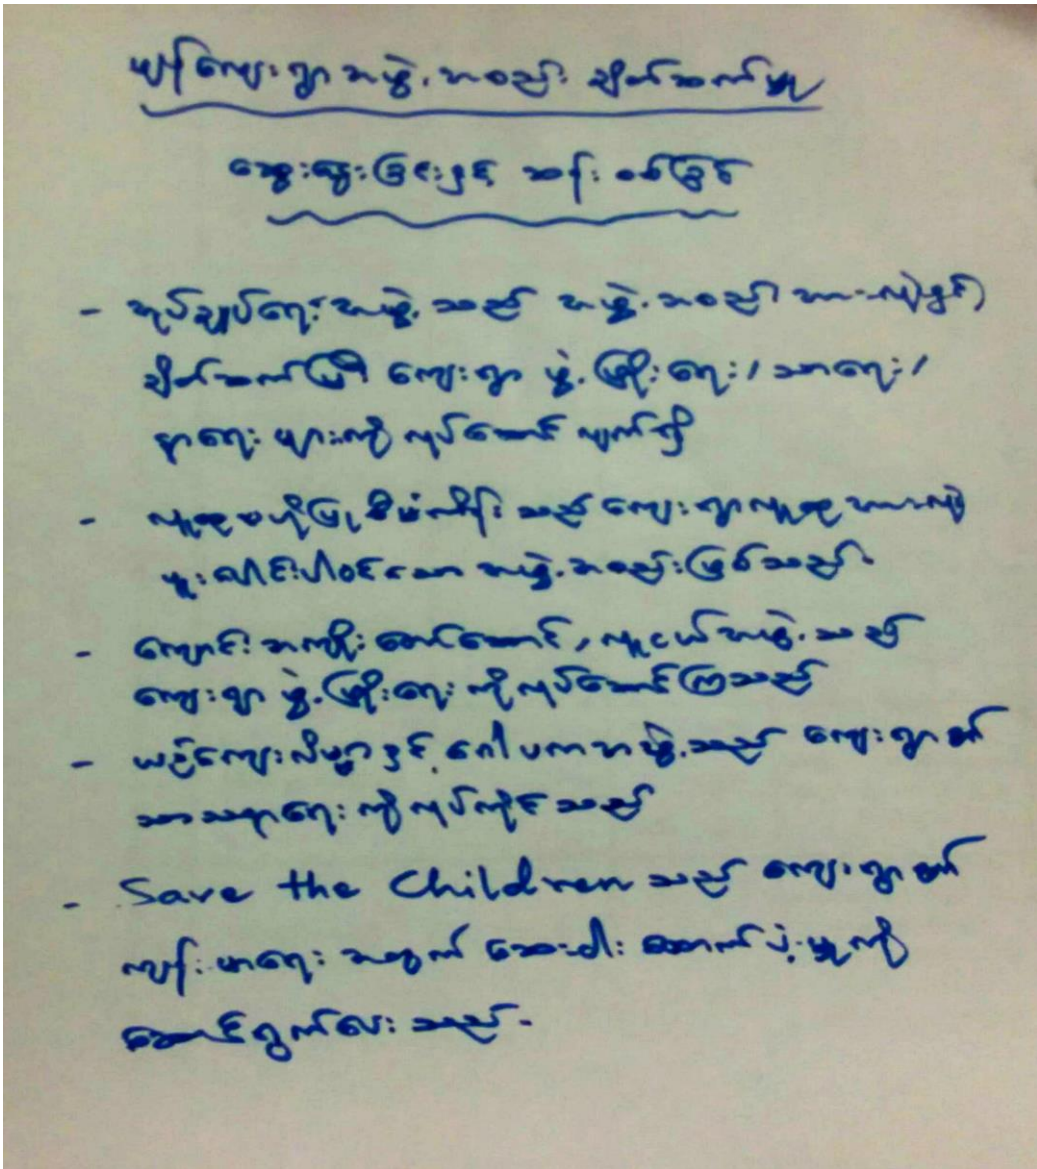 ကျေးရွာအဖွဲ့အစည်း ချိတ်ဆက်မှု
ဆွေးနွေးခြင်းနှင့် ဆန်းစစ်ခြင်း
- အုပ်ချုပ်ရေးအဖွဲ့သည် အဖွဲ့အစည်း အားလုံးနှင့်
ချိတ်ဆက်ပြီး ကျေးရွာ ဖွံ့ဖြိုးရေး၊ သာရေး၊
နာရေး များကို လုပ်ဆောင် လျက်ရှိ
- လူထုဗဟိုပြု စီမံကိန်း သည် ကျေးရွာလူထု အားလုံး
ပူးပေါင်းပါဝင်သော အဖွဲ့အစည်းဖြစ်သည်.
- ကျောင်းအကျိုးတော်ဆောင်, လူငယ်အဖွဲ့သည်
ကျေးရွာ ဖွံ့ဖြိုးရေး ကို လုပ်ဆောင်ကြသည်
- ယဉ်ကျေးလိမ္မာ နှင့် ဂေါပကအဖွဲ့သည် ကျေးရွာ၏
သာသနာရေး ကို လုပ်ကိုင်သည်
- Save the Children သည် ကျေးရွာ၏
ကျန်းမာရေး အတွက် ဆေးဝါး ထောက်ပံ့မှုကို
ဆောင်ရွက်ပေးသည်.